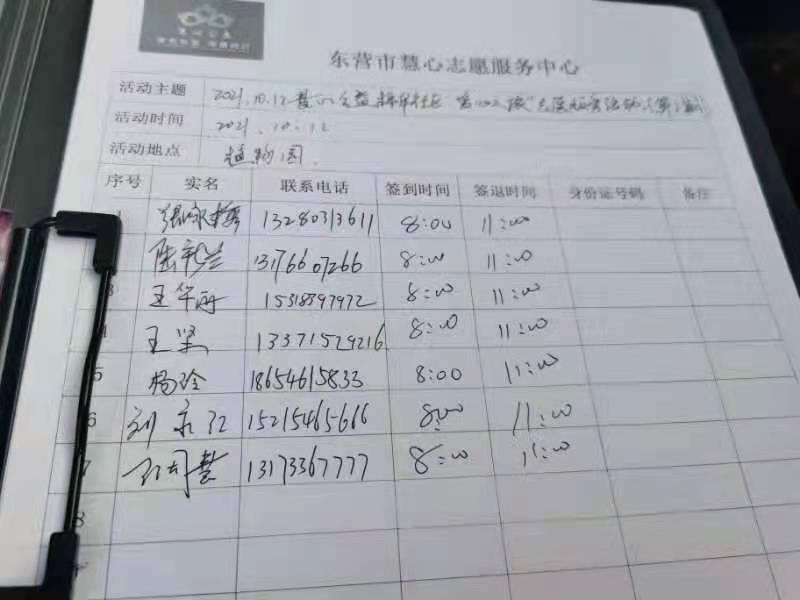 东营市慧心志愿服务中心
活动主题 2021.10.12慧心公益
活动时间 2021.10.12
活动地点 植物园.
序号 实名 联系电话 签到时间 签退时间 身份证号码 备注
13280313611 8:00 11:00
13176607266 8:00 11:00
王华丽 15318397972 8:00 11:00
王坚 13371529216 8:00 11:00
5 杨玲 18654615833 8:00 11:00
6 刘永红 15215465666 8:00 11:00
7 13173367777 8:00 11:00
8